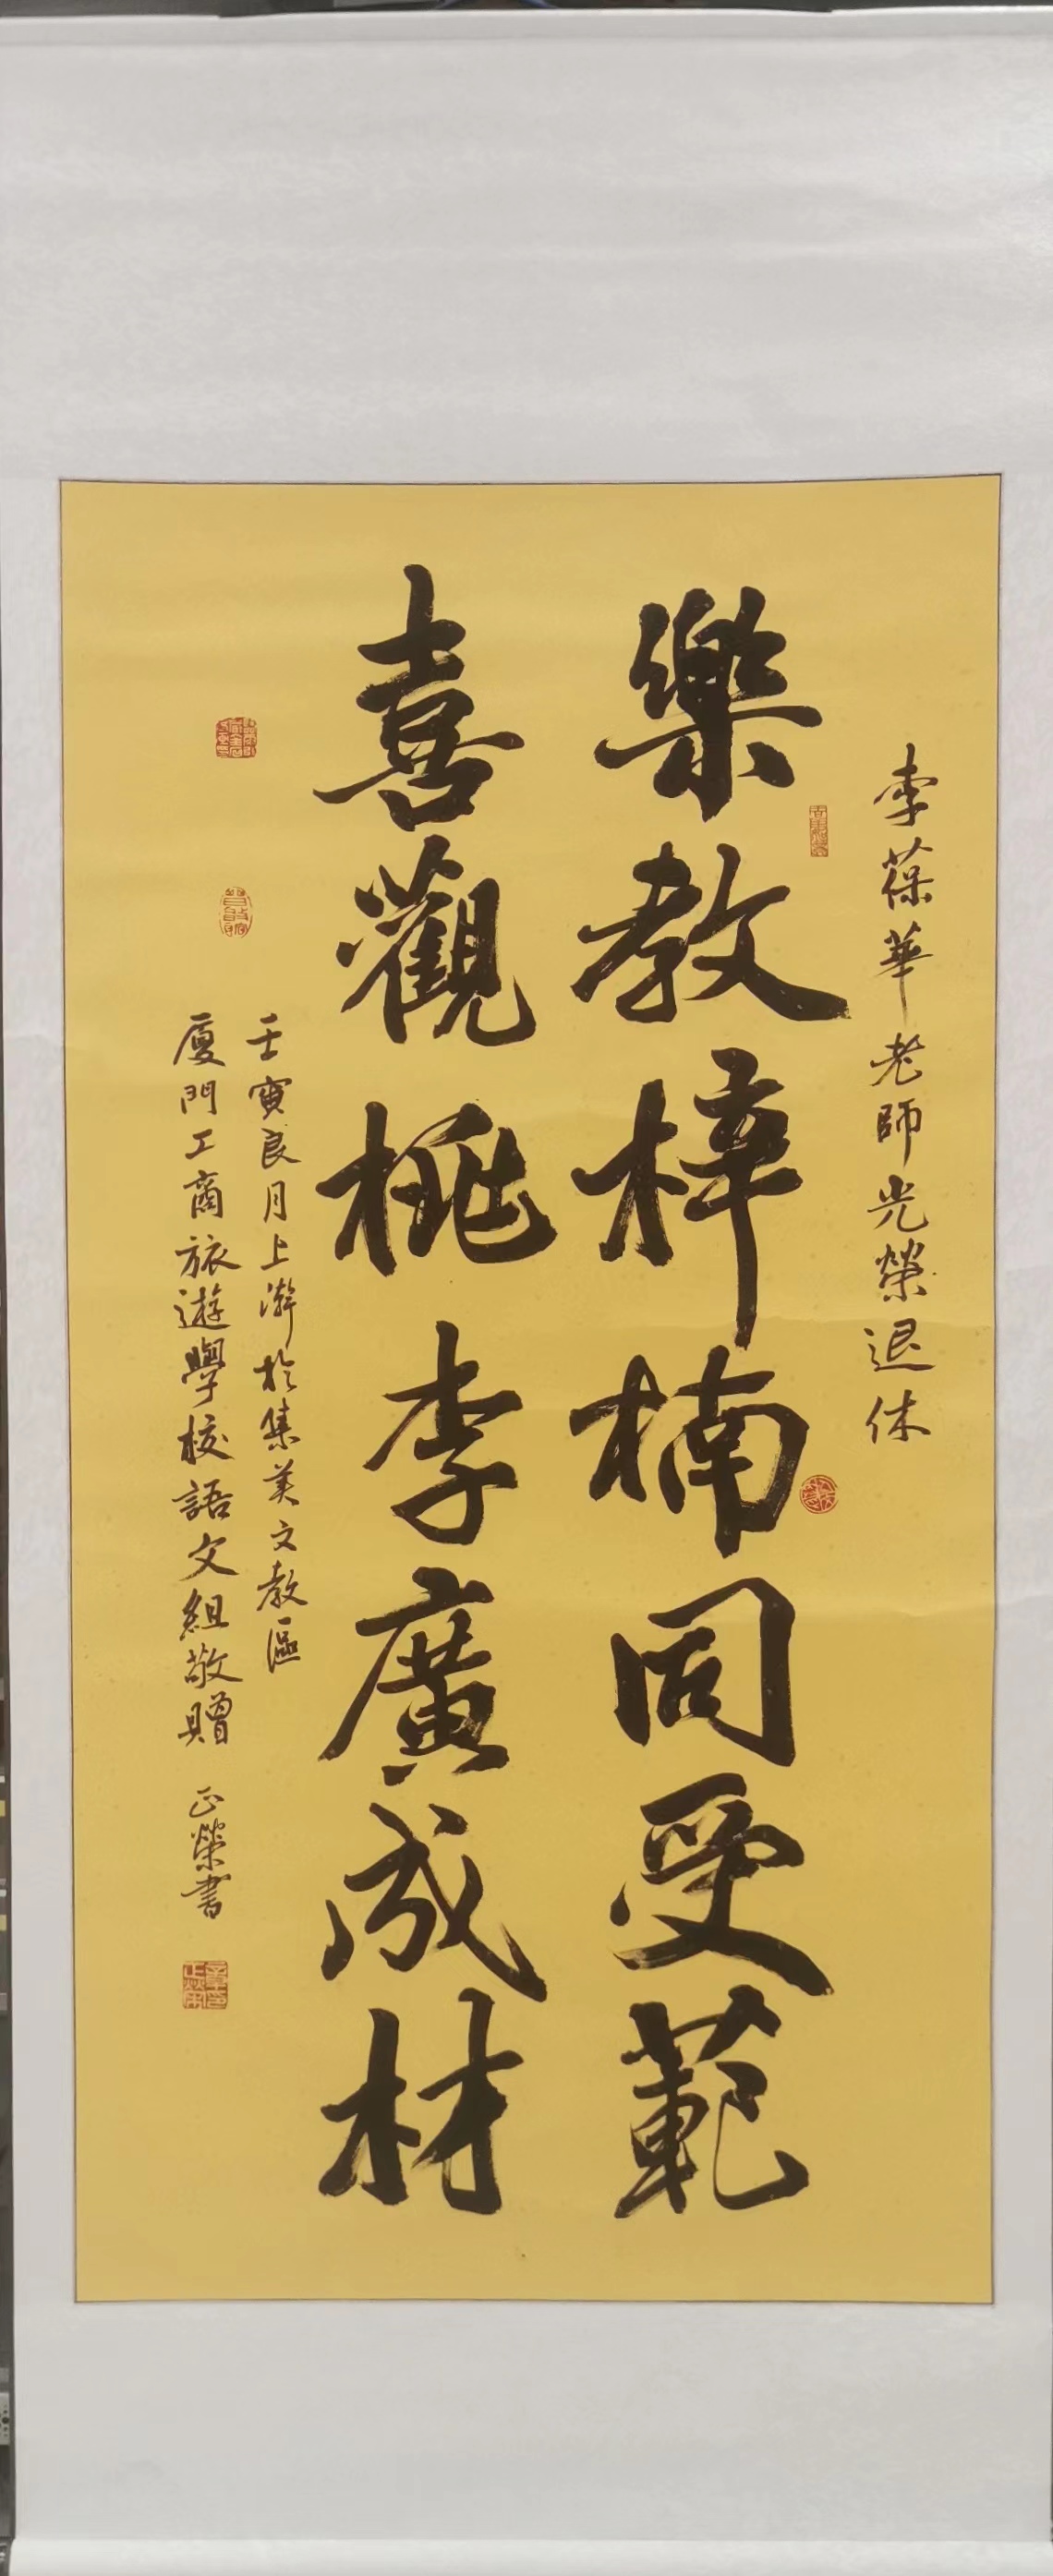 李葆華老師光榮退休
樂教梓楠同受範
喜觀桃李廣成材
壬寅良月上澣於集美文教區
廈門工商旅遊學校語文組敬贈 正榮書